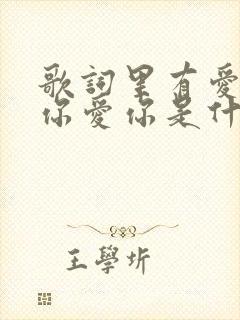 歌詞里有愛
你愛你是什
王學圻